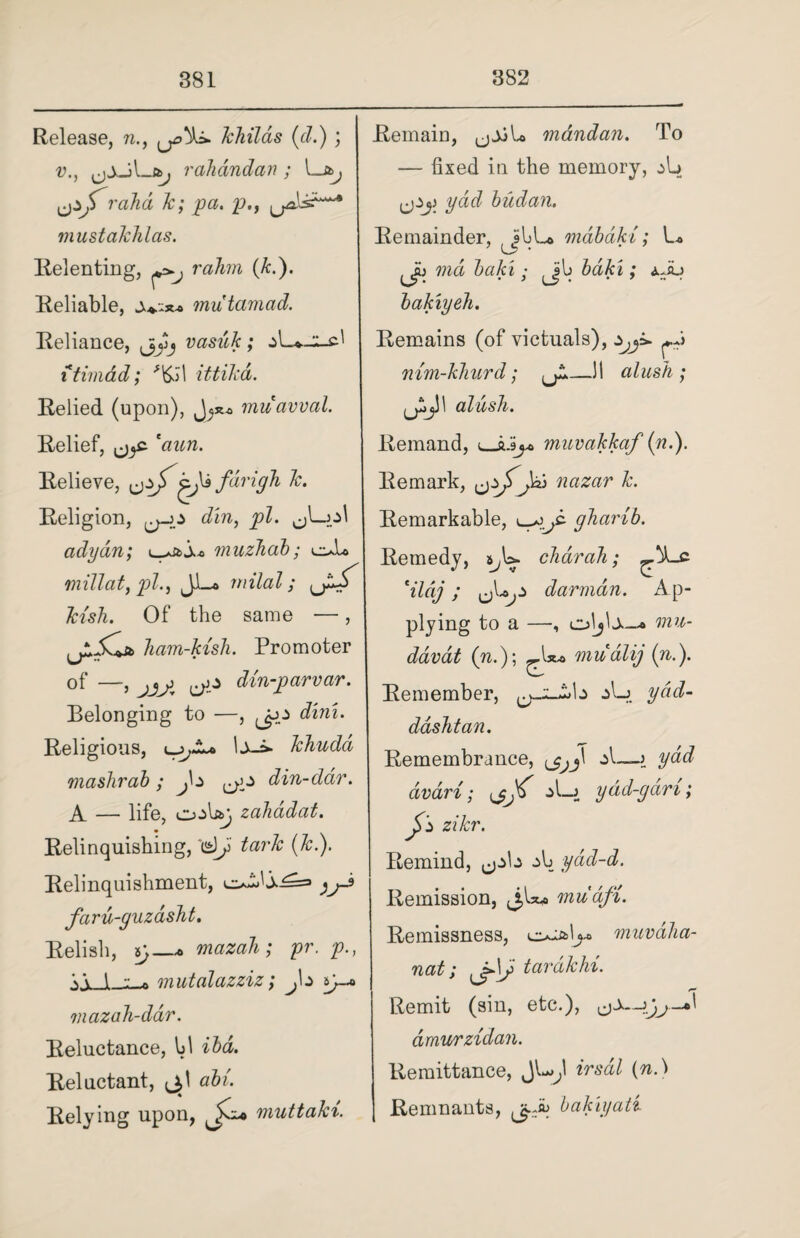 381
382
Release, n., خلاص khilás (d.) ;
v., رهاندن rahándan ; رها
کردن rahá k; pa. p., مستخلص
mustakhlas.
Relenting, رحم rahm (k.).
Reliable, معتمد mu'tamad.
Reliance, وثوق vasúk ; اعتماد
i'timád; اتکاء ittiká.
Relied (upon), معول mu'avval.
Relief, عون 'aun.
Relieve, فارغ کردن fárigh k.
Religion, دین dín, pl. ادیان
adyán; مذهب muzhab; ملت
millat, pl., ملل milal ; کیش
kísh. Of the same — ,
همکیش ham-kísh. Promoter
of —, دین پرور dín-parvar.
Belonging to —, دینی díní.
Religious, خدا مشرب khudá
mashrab ; دین دار din-dár.
A — life, زهادت zahádat.
Relinquishing, ترك tark (k.).
Relinquishment, فرو گذاشت
farú-guzásht.
Relish, مزه mazah ; pr. p.,
متلذذ mutalazziz ; مزه دار
mazah-dár.
Reluctance, ابا ibá.
Reluctant, ابی abí.
Relying upon, متکی muttakí.
Remain, ماندن mándan. To
— fixed in the memory, یاد
بودن yád búdan.
Remainder, مابقی mábákí ; ما
بقی má baki ; باقی báki ; بقیه
bakiyeh.
Remains (of victuals), نیم خورد
ním-khurd ; الش alush ;
الوش alúsh.
Remand, موقف muvakkaf (n.).
Remark, نظر کردن nazar k.
Remarkable, غریب gharíb.
Remedy, چاره chárah ; علاج
'iláj ; درمان darmán. Ap-
plying to a —, مداوات mu-
dávát (n.); معالج mu'álij (n.).
Remember, یاد داشتن yád-
dáshtan.
Remembrance, یاد آوری yád
ávárí ; یاد گاری yád-gárí ;
ذکر zikr.
Remind, یاد دادن yád-d.
Remission, معافی mu'áfí.
Remissness, مواهنت muváha-
nat ; تراخی tarákhí.
Remit (sin, etc.), آمرزیدن
ámurzídan.
Remittance, ارسال irsál (n.)
Remnants, بقیتی bakiyati